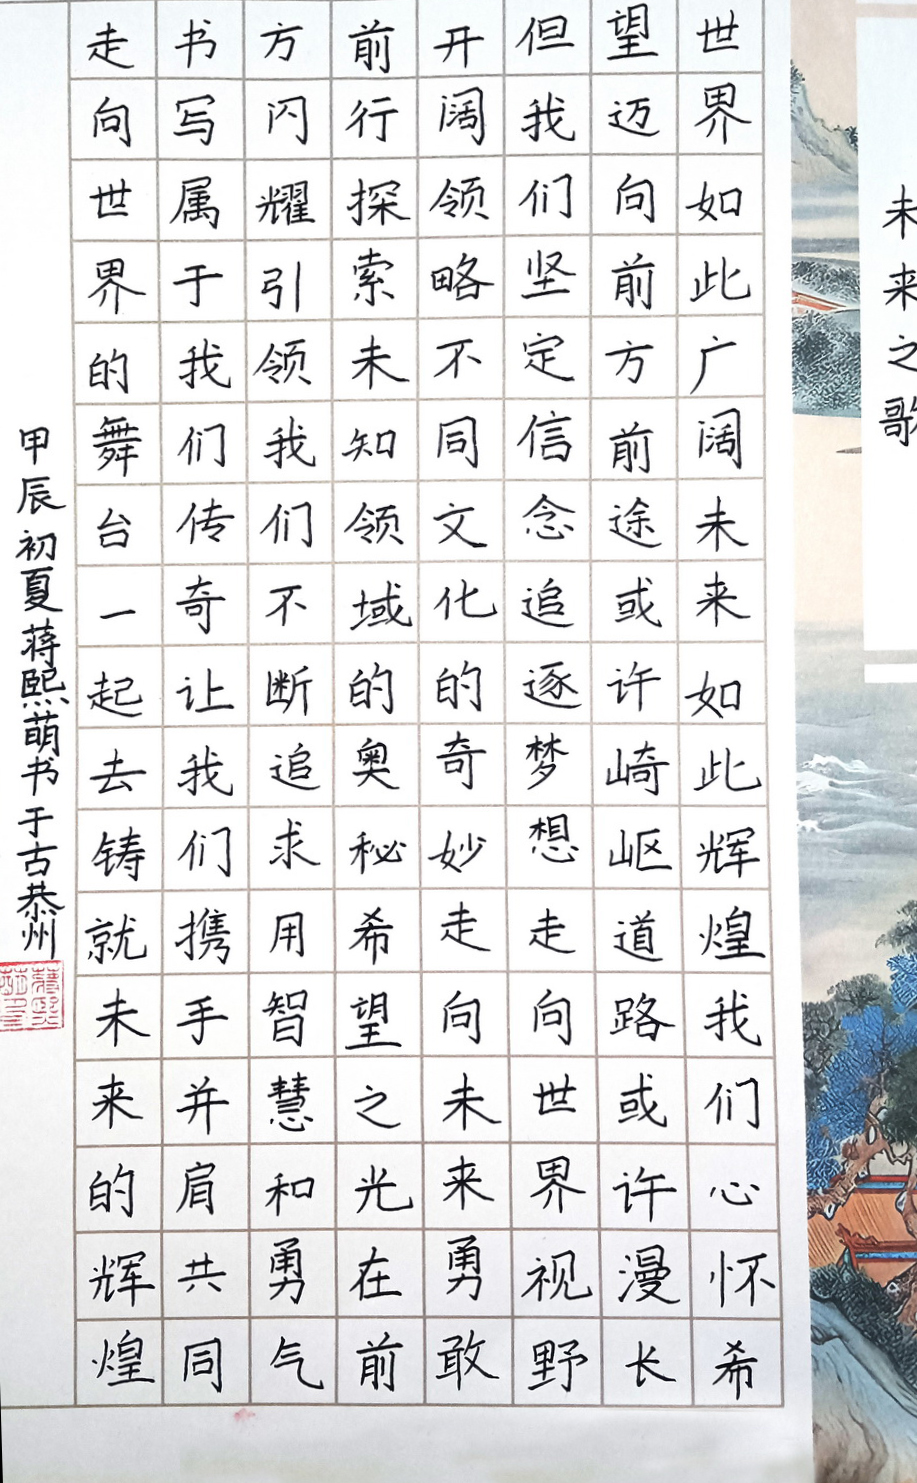 未来之歌
世界如此广阔未来如此辉煌我们心怀希
望迈向前方前途或许崎岖道路或许漫长
但我们坚定信念追逐梦想走向世界视野
开阔领略不同文化的奇妙走向未来勇敢
前行探索未知领域的奥秘希望之光在前
方闪耀引领我们不断追求用智慧和勇气
书写属于我们传奇让我们携手并肩共同
走向世界的舞台一起去铸就未来的辉煌
甲辰初夏蒋熙萌书于古恭州